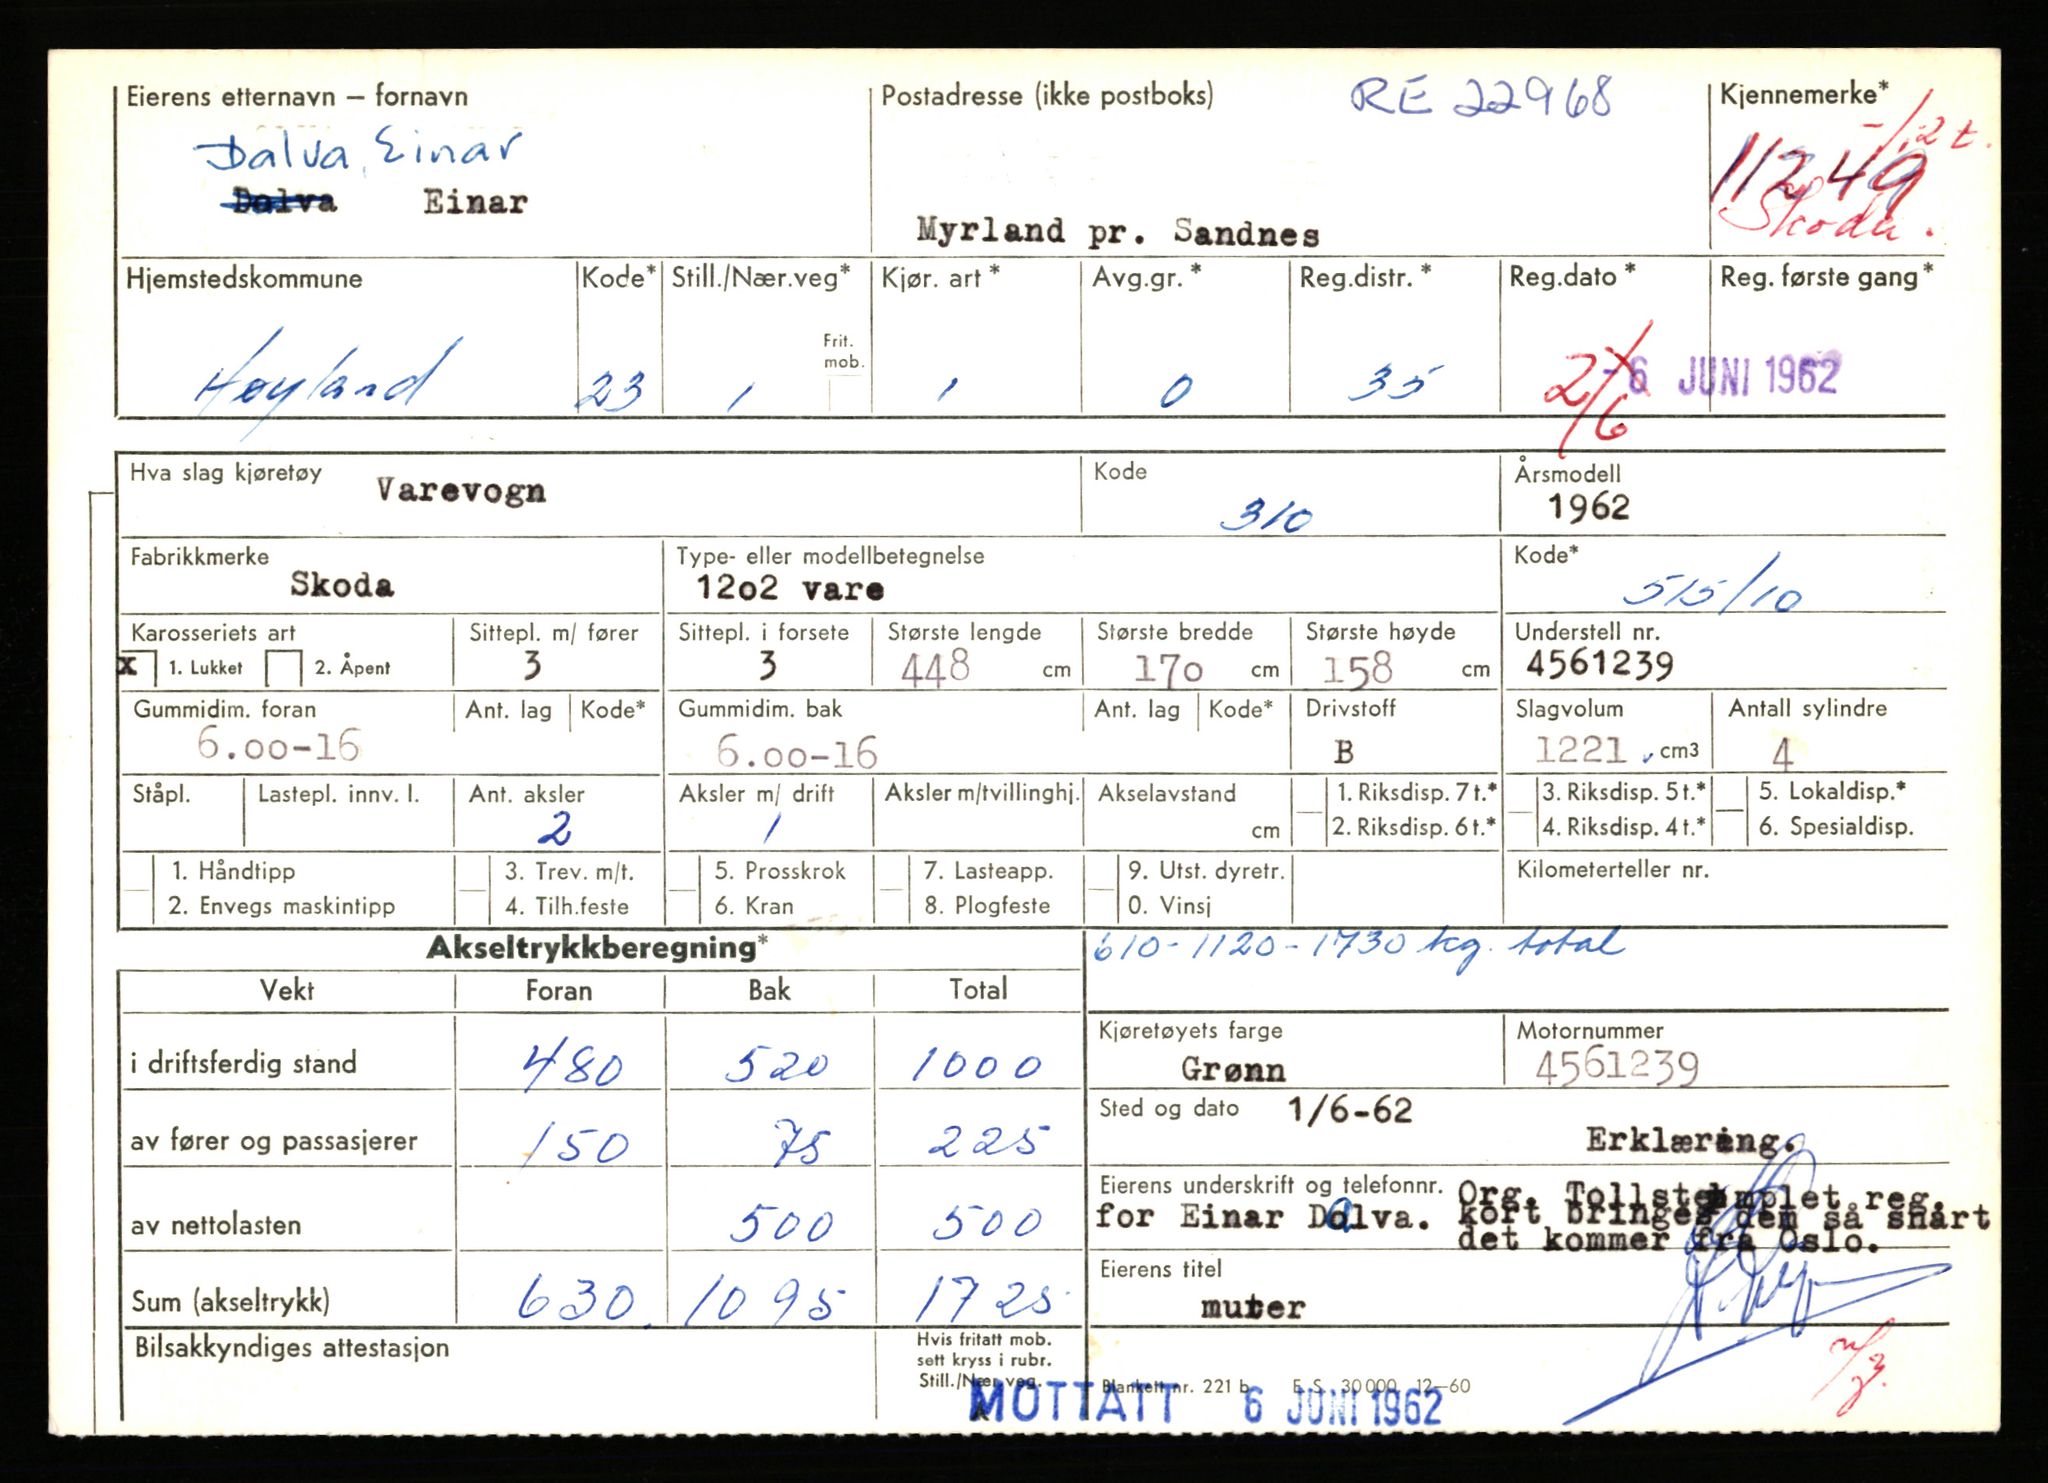 Eierens etternavn – fornavn
Postadresse (ikke postboks)
RE 22968
Kjennemerke*
Dalva, Einar
11249
Skoda.
Dolva Einar
Myrland pr. Sandnes
Hjemstedskommune Kode* Still./Nær.veg* Kjør. art* Avg.gr.* Reg.distr.* Reg.dato* Reg. første gang*
Frit.
mob.
Høyland 23 1 1 0 35 2/6 -6 JUNI 1962
Hva slag kjøretøy Varevogn Kode 310 Årsmodell
1962
Fabrikkmerke Type- eller modellbetegnelse Kode*
Skoda 12o2 vare 515/10
Karosseriets art Sittepl. m/ fører Sittepl. i forsete Største lengde Største bredde Største høyde Understell nr.
x 1. Lukket 2. Åpent 3 3 448 cm 170 cm 158 cm 4561239
Gummidim. foran Ant. lag Kode* Gummidim. bak Ant. lag Kode* Drivstoff Slagvolum Antall sylindre
6.00-16 6.00-16 B 1221 cm3 4
Ståpl. Lastepl. innv. l. Ant. aksler Aksler m/ drift Aksler m/tvillinghj. Akselavstand 1. Riksdisp. 7 t.* 3. Riksdisp. 5 t.* 5. Lokaldisp.*
2 1 cm 2. Riksdisp. 6 t.* 4. Riksdisp. 4 t.* 6. Spesialdisp.
1. Håndtipp 3. Trev. m/t. 5. Prosskrok 7. Lasteapp. 9. Utst. dyretr. Kilometerteller nr.
2. Envegs maskintipp 4. Tilh.feste 6. Kran 8. Plogfeste 0. Vinsj
Akseltrykkberegning*
610-1120-1730 kg. total
Vekt Foran Bak Total
Kjøretøyets farge Motornummer
i driftsferdig stand 480 520 1000
Grønn 4561239
Sted og dato 1/6-62
av fører og passasjerer 150 75 225
Erklæring.
Eierens underskrift og telefonnr. Org. Tollstemplet reg.
for Einar Dalva. kort bringes dem så snart
det kommer fra Oslo.
av nettolasten 500 500
Eierens titel
Sum (akseltrykk) 630 1095 1725
murer
Bilsakkyndiges attestasjon
Hvis fritatt mob.
sett kryss i rubr.
Still./Nær.veg.
Blankett nr. 221 b E. S. 30 000 12–60
MOTTATT 6 JUNI 1962